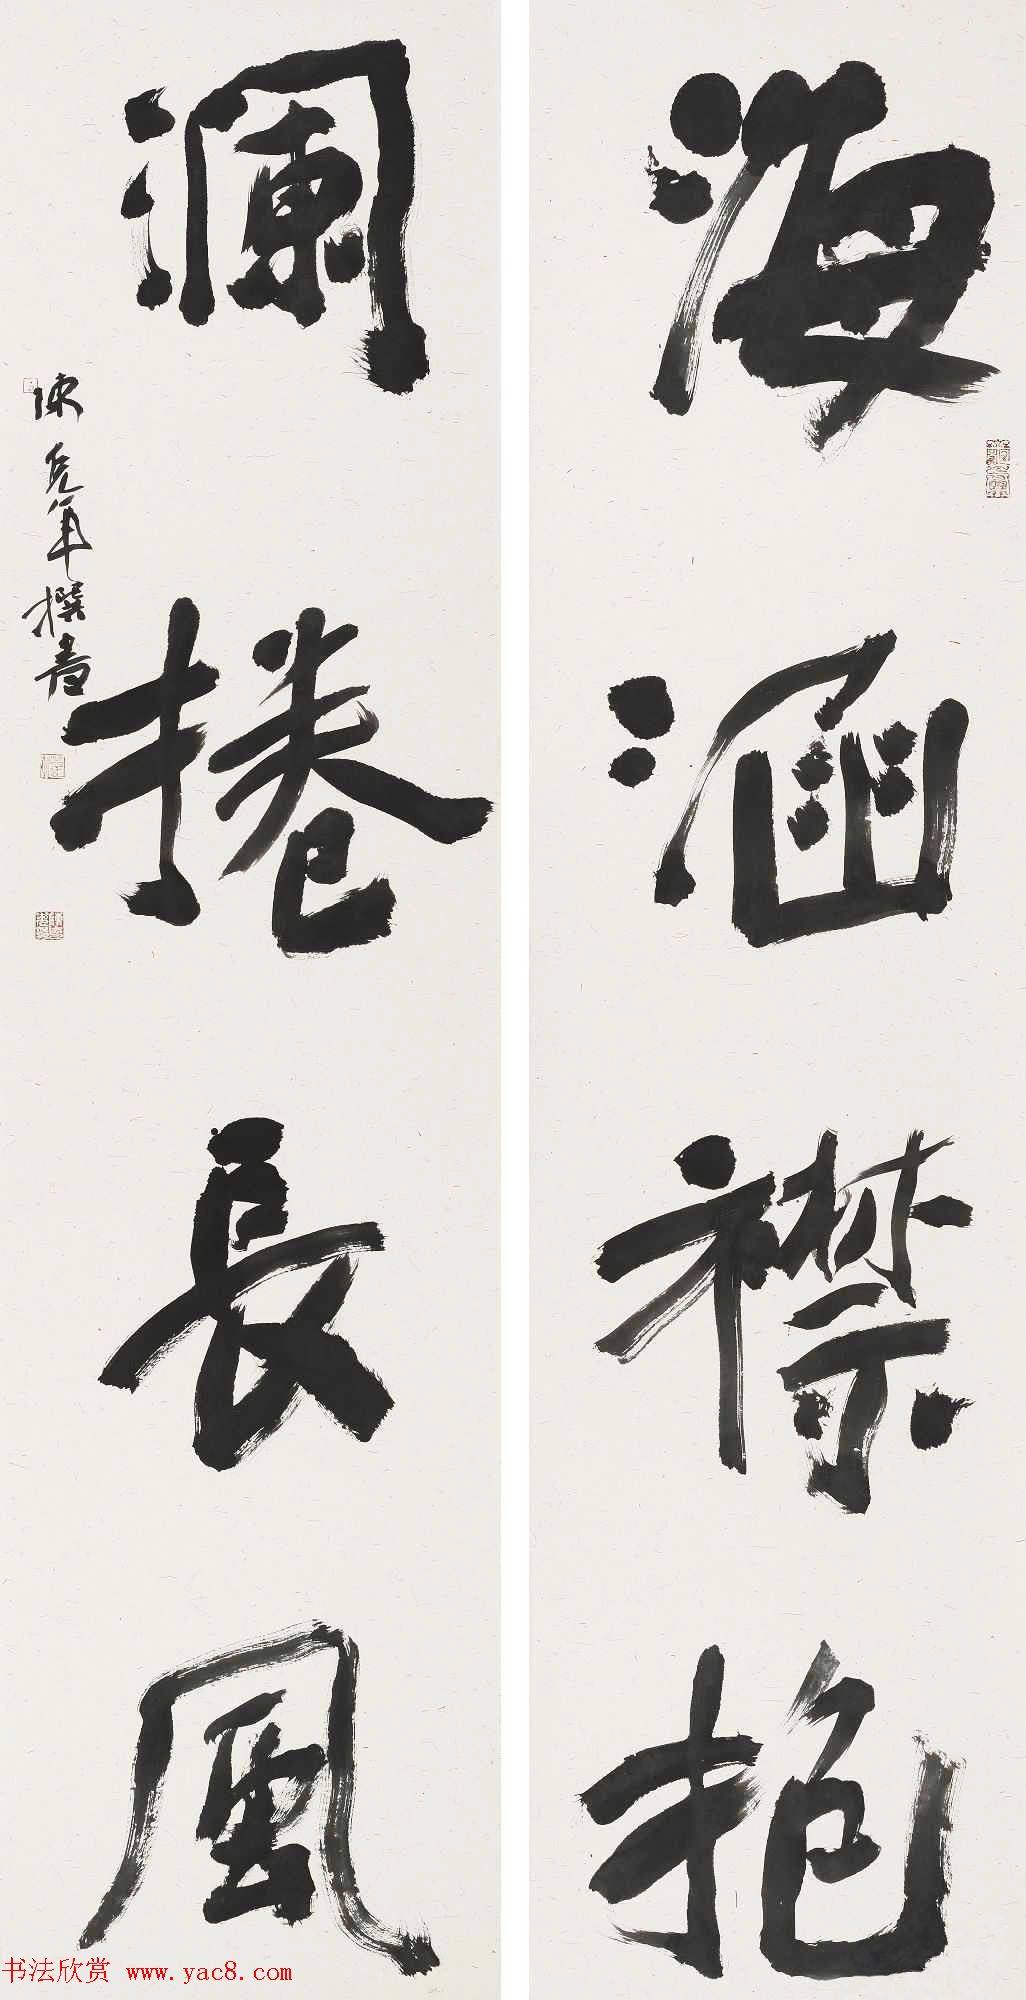 海涵襟抱
瀾捲長風
陳克年撰書
书法欣赏 www.yac8.com